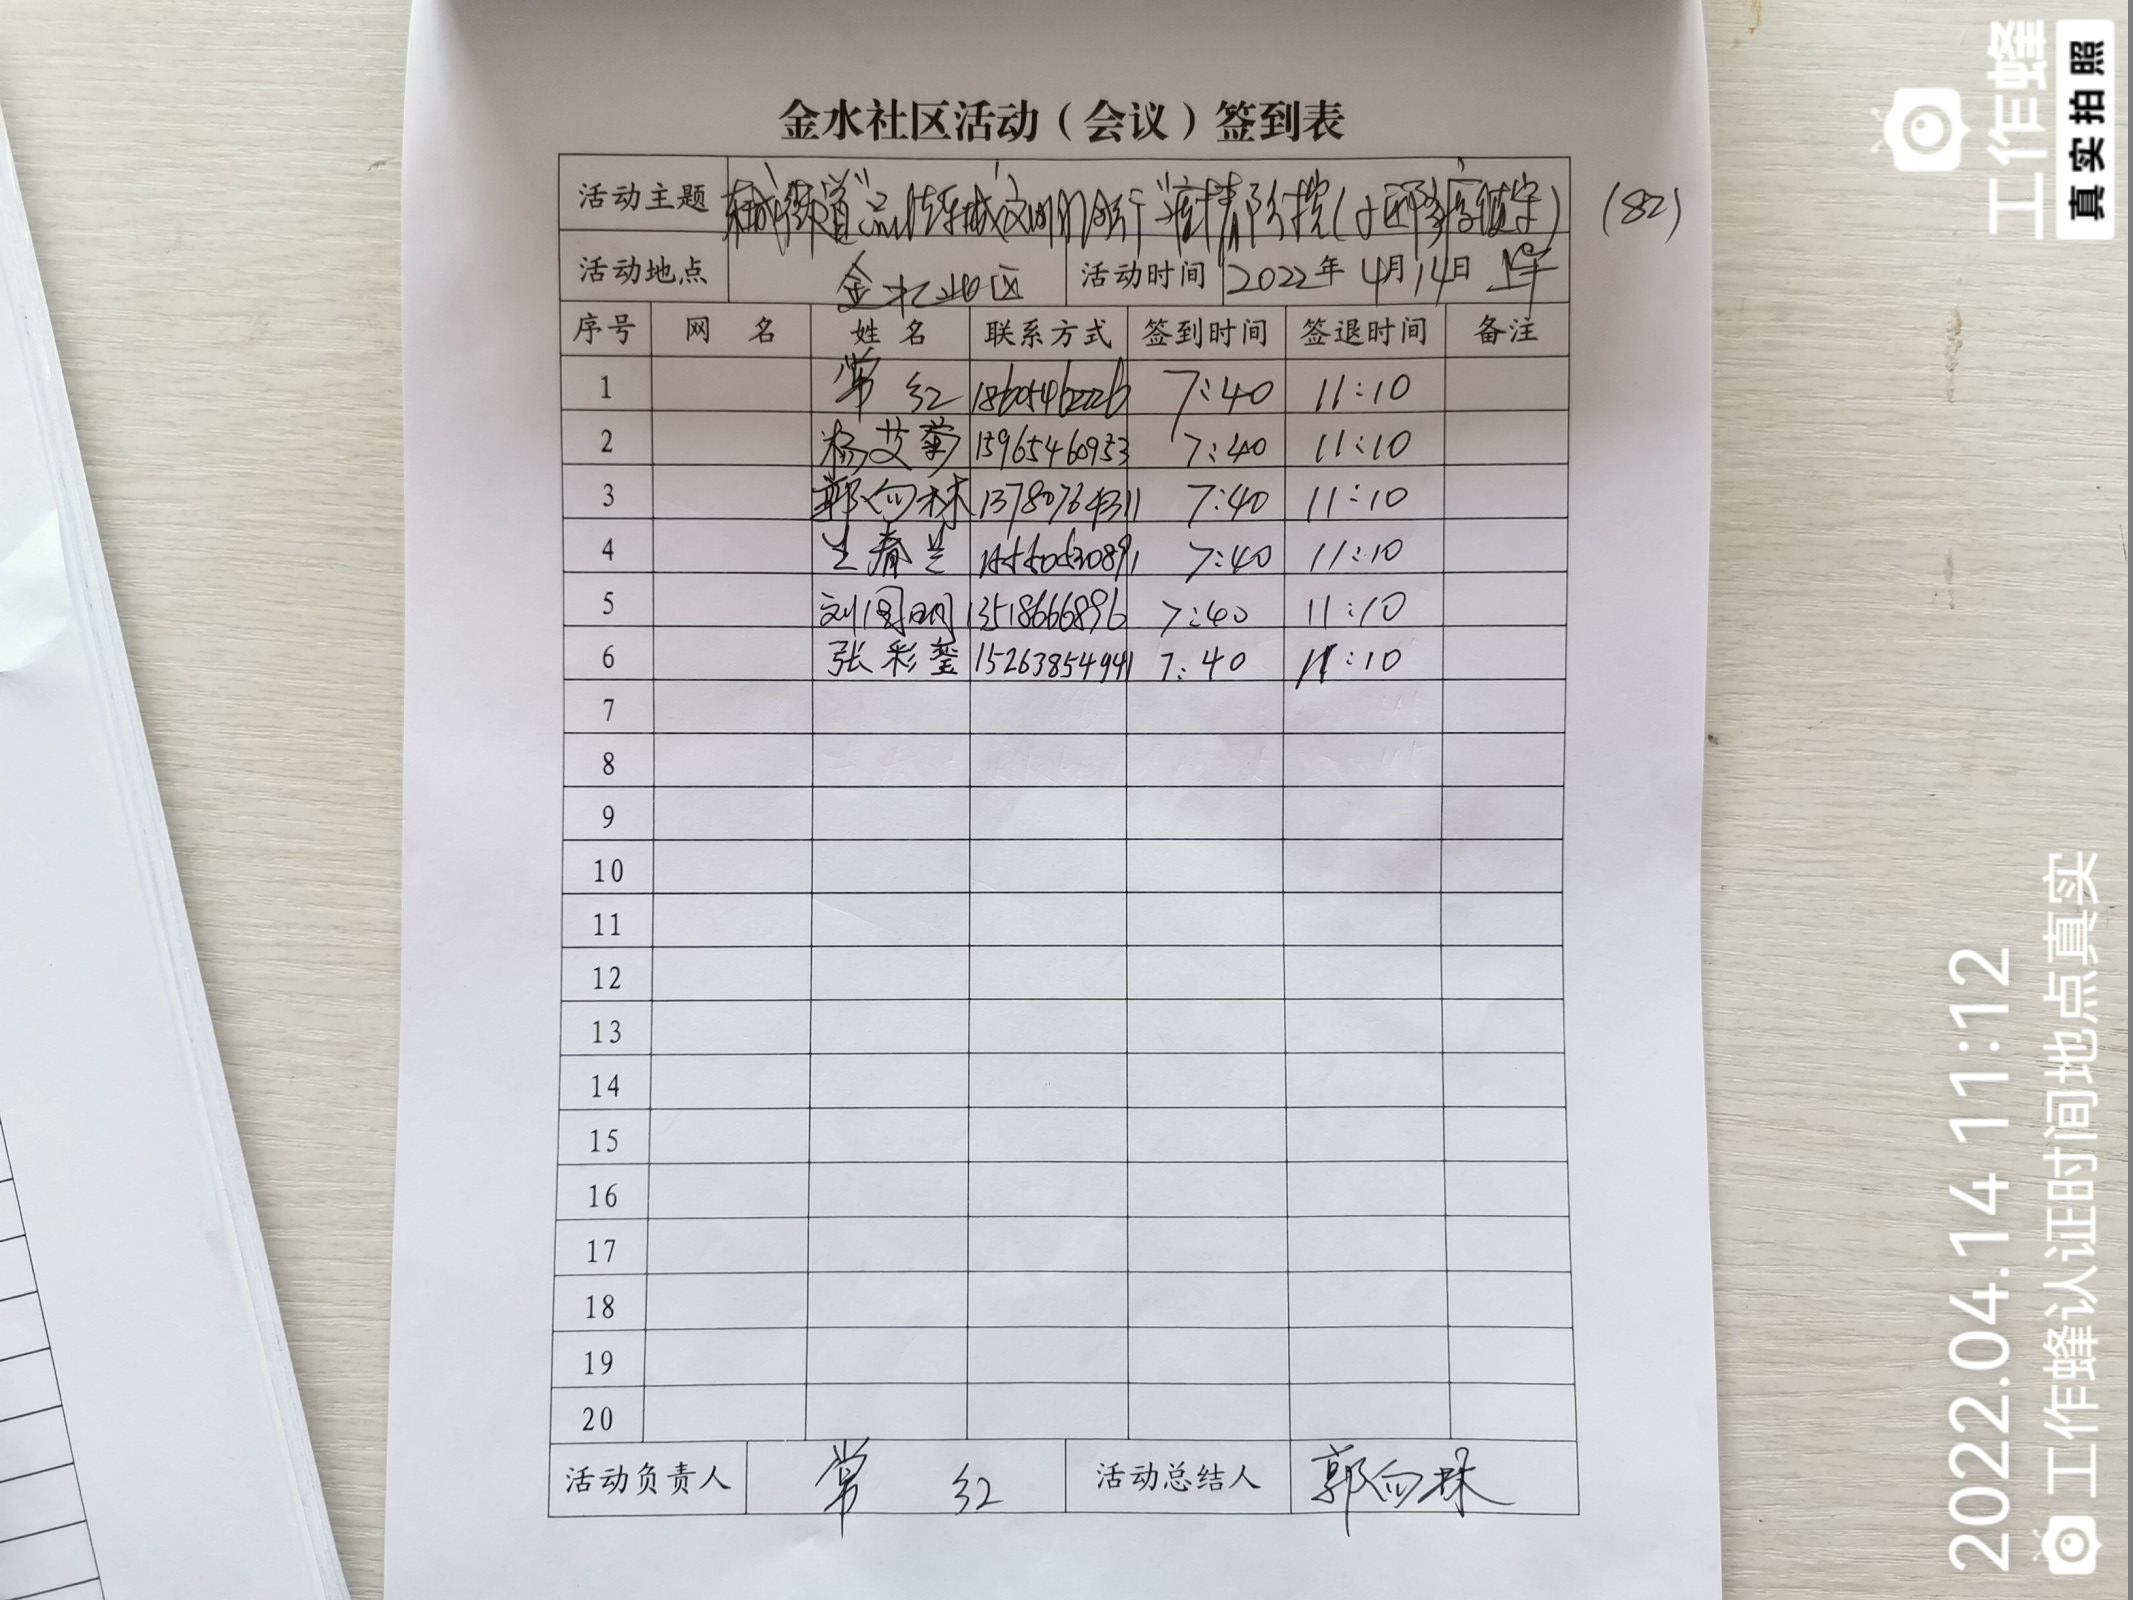 金水社区活动（会议）签到表
活动主题 东城街道 文明 疫情防控 (82)
活动地点 金水社区 活动时间 2022年4月14日 上午
序号 网名 姓名 联系方式 签到时间 签退时间 备注
1 常红 18605462226 7:40 11:10
2 杨艾菊 15965460953 7:40 11:10
3 郭向林 13780764311 7:40 11:10
4 王春兰 7:40 11:10
5 刘国明 13518666896 7:40 11:10
6 张彩蛰 15263854941 7:40 11:10
7
8
9
10
11
12
13
14
15
16
17
18
19
20
活动负责人 常红 活动总结人 郭向林
工作蜂
真实拍照
2022.04.14 11:12
工作蜂认证时间地点真实